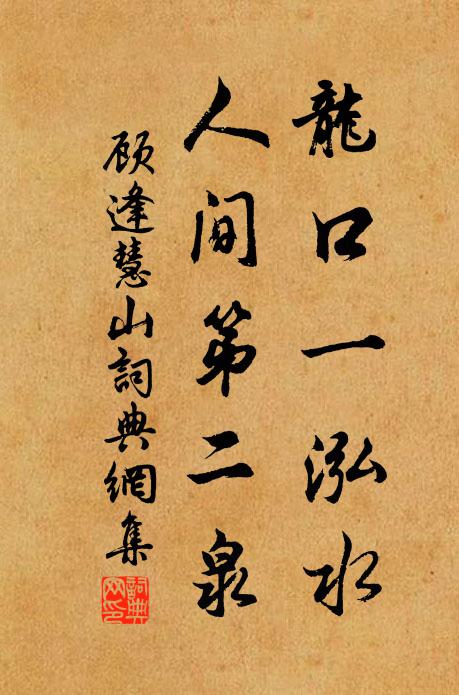 龍口一泓水
人间第二泉
顾逢慧山詞典網集
詞典网印